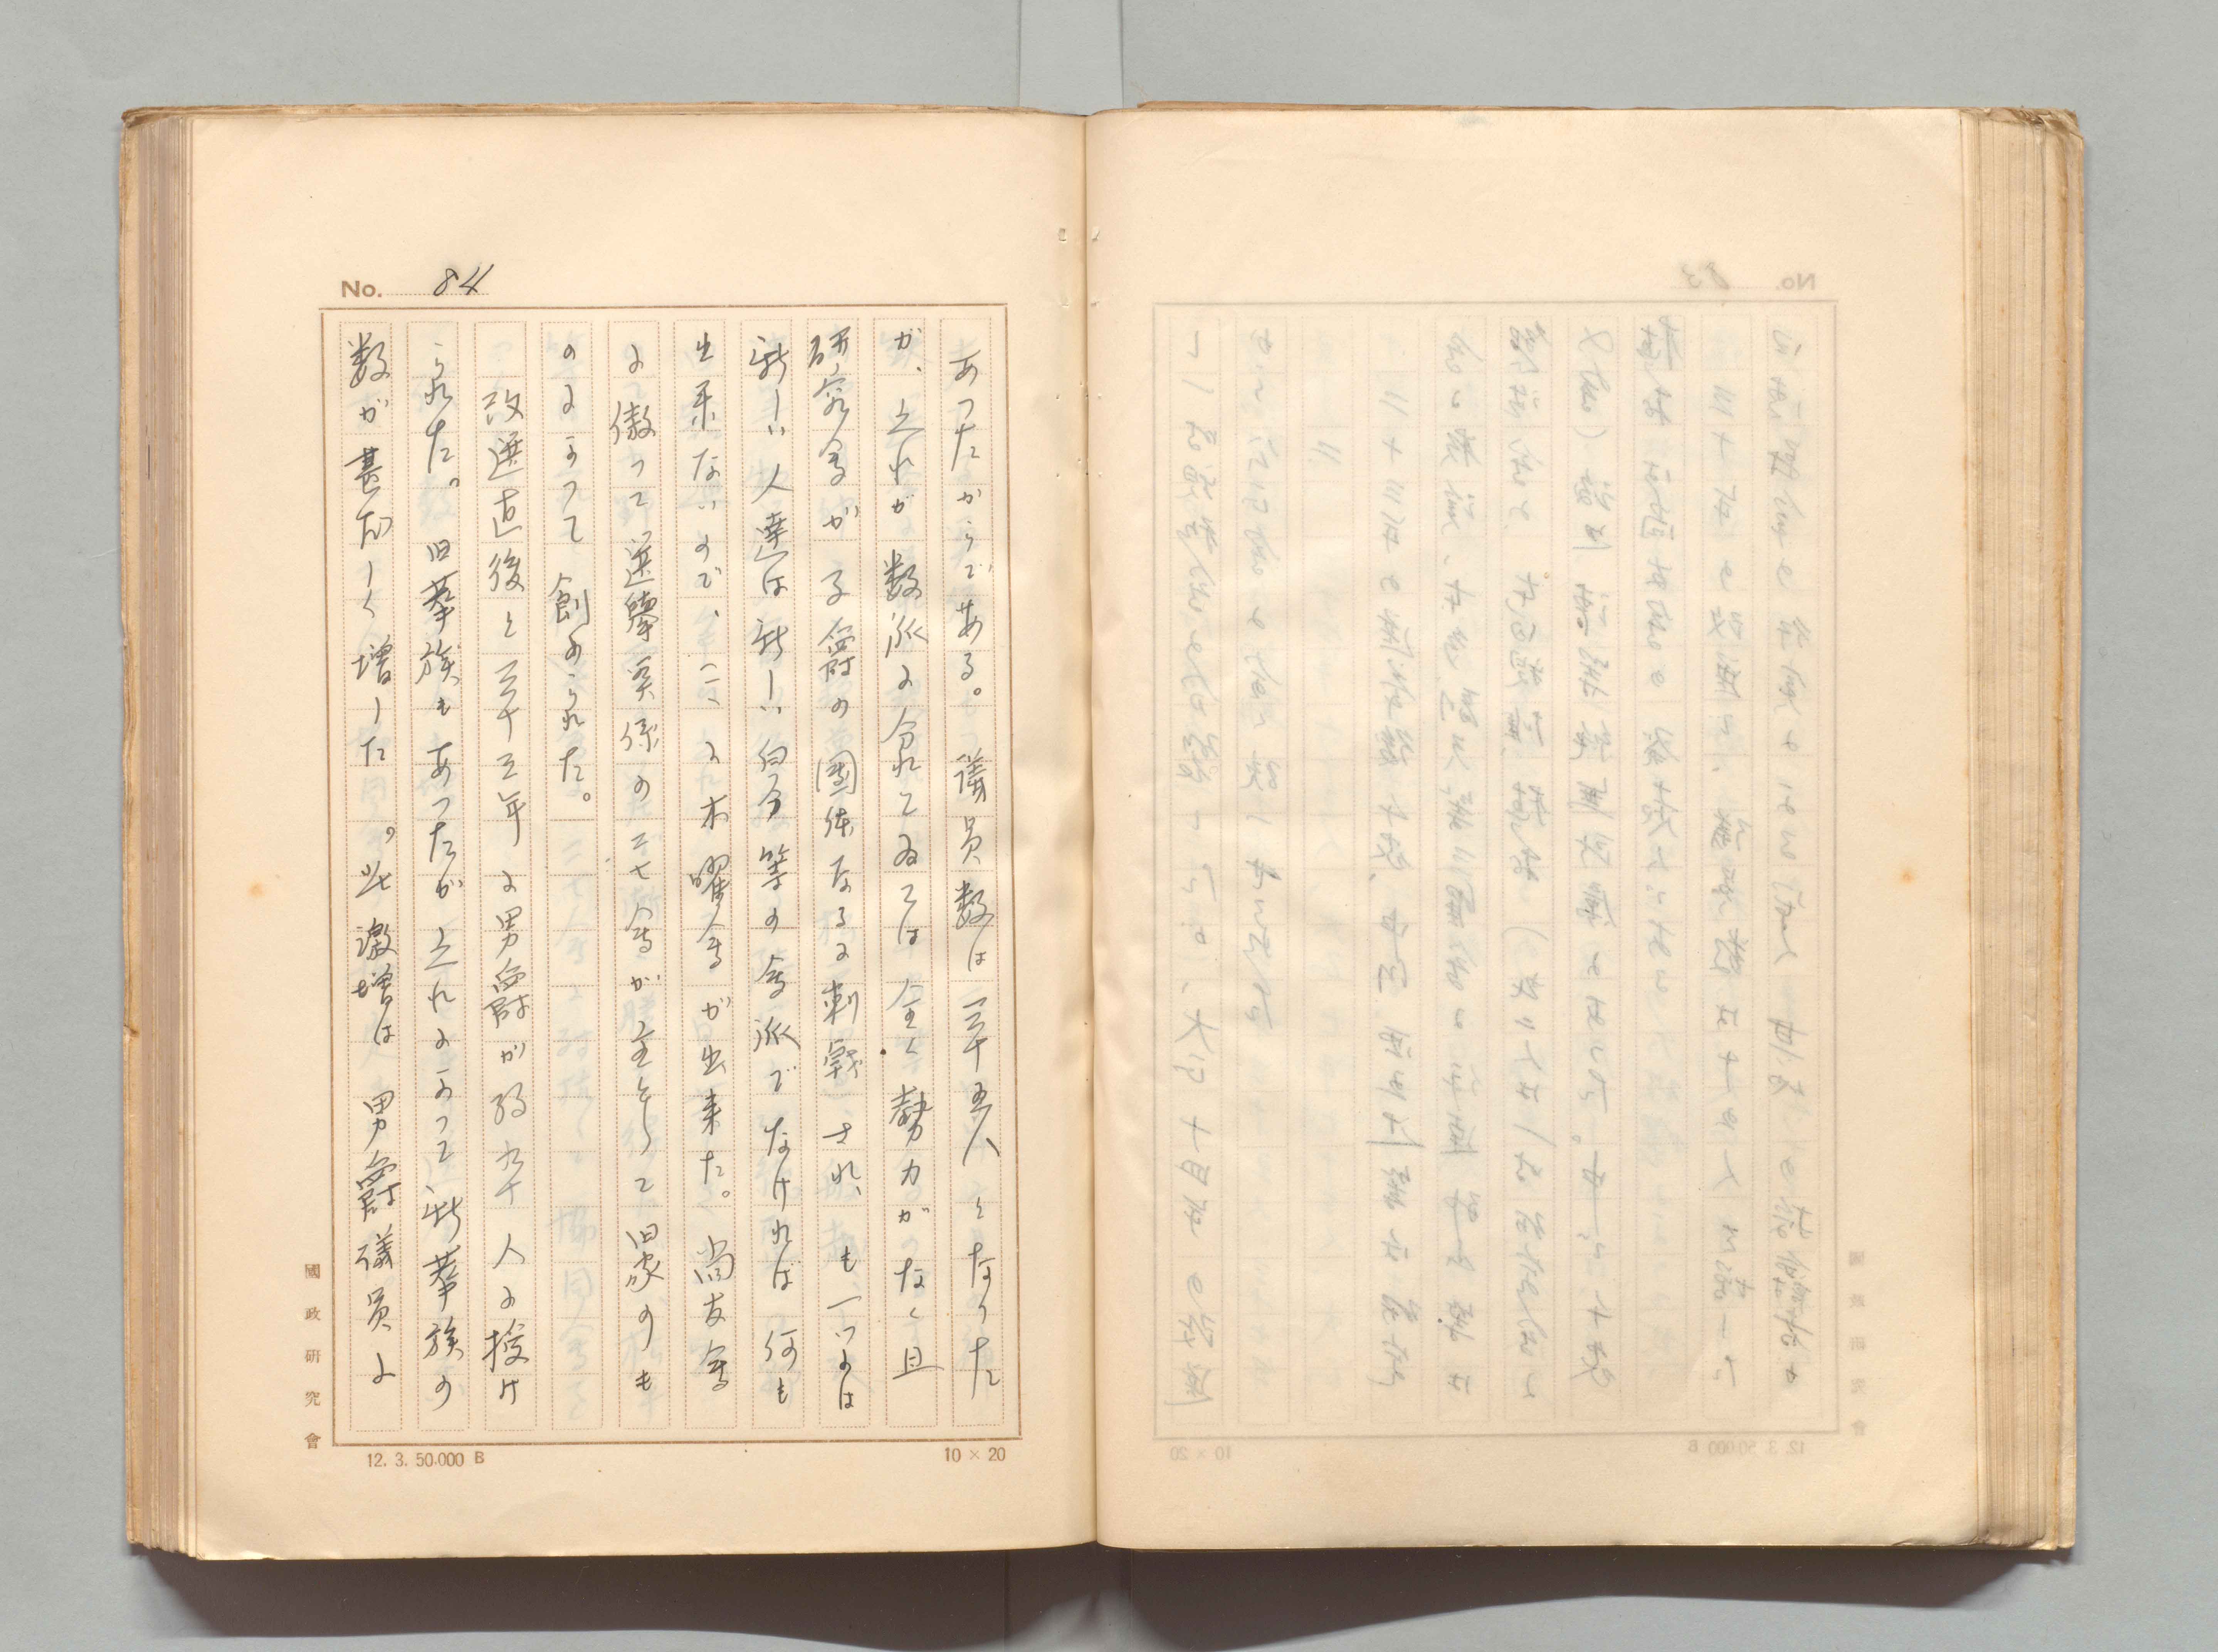 No. 84
あつたからである。議員数は三十五人となつた
が、之れが数派に分れてゐては全く勢力がなく且
研究会が子爵の團体なるに刺戟され、も一つには
新しい人達は新しい自分等の会派でなければ何も
出来ないので、こゝに木曜会が出来た。尚友会
に倣つて選挙関係の二七会が主として旧家のも
のによつて創められた。
改選直後と三十三年に男爵が約九十人に授け
られた。旧華族もあつたが之れによつて新華族の
数が甚だしく増した。此激増は男爵議員に
國政研究會
12. 3. 50.000 B
10 × 20